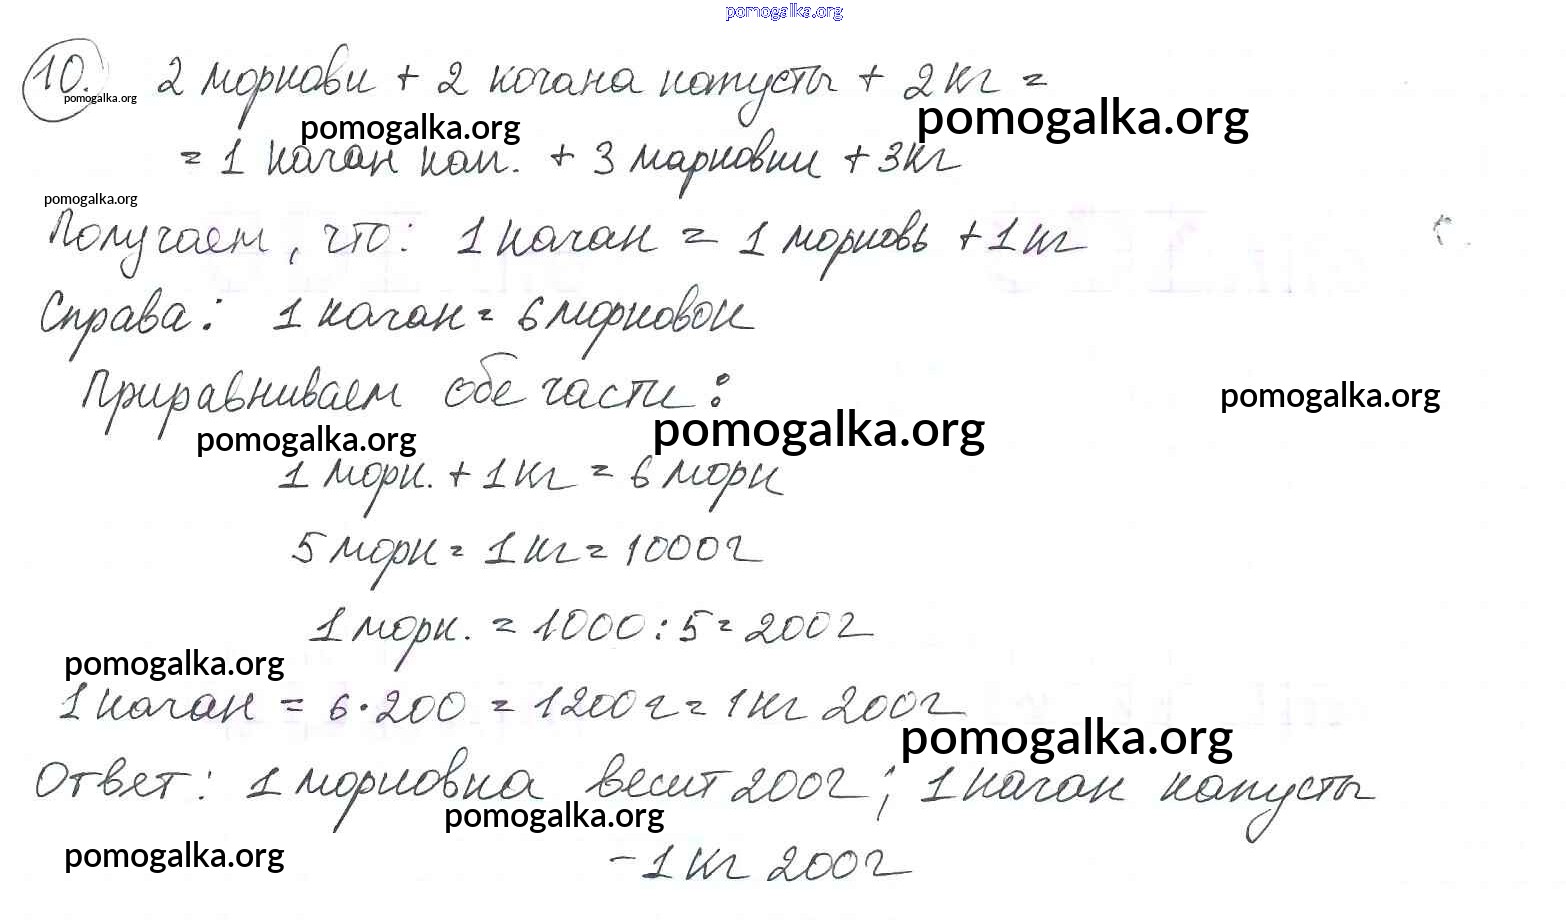 pomogalka.org
10. 2 моркови + 2 кочана капусты + 2 кг =
pomogalka.org
pomogalka.org pomogalka.org
= 1 качан кап. + 3 марковки + 3 кг
pomogalka.org
Получаем, что: 1 качан = 1 морковь + 1 кг
Справа: 1 качан = 6 морковок
Приравниваем обе части:
pomogalka.org
pomogalka.org pomogalka.org
1 морк. + 1 кг = 6 морк
5 морк = 1 кг = 1000 г
1 морк. = 1000 : 5 = 200 г
pomogalka.org
1 качан = 6 · 200 = 1200 г = 1 кг 200 г
pomogalka.org
Ответ: 1 морковка весит 200 г; 1 качан капусты
pomogalka.org
pomogalka.org
– 1 кг 200 г